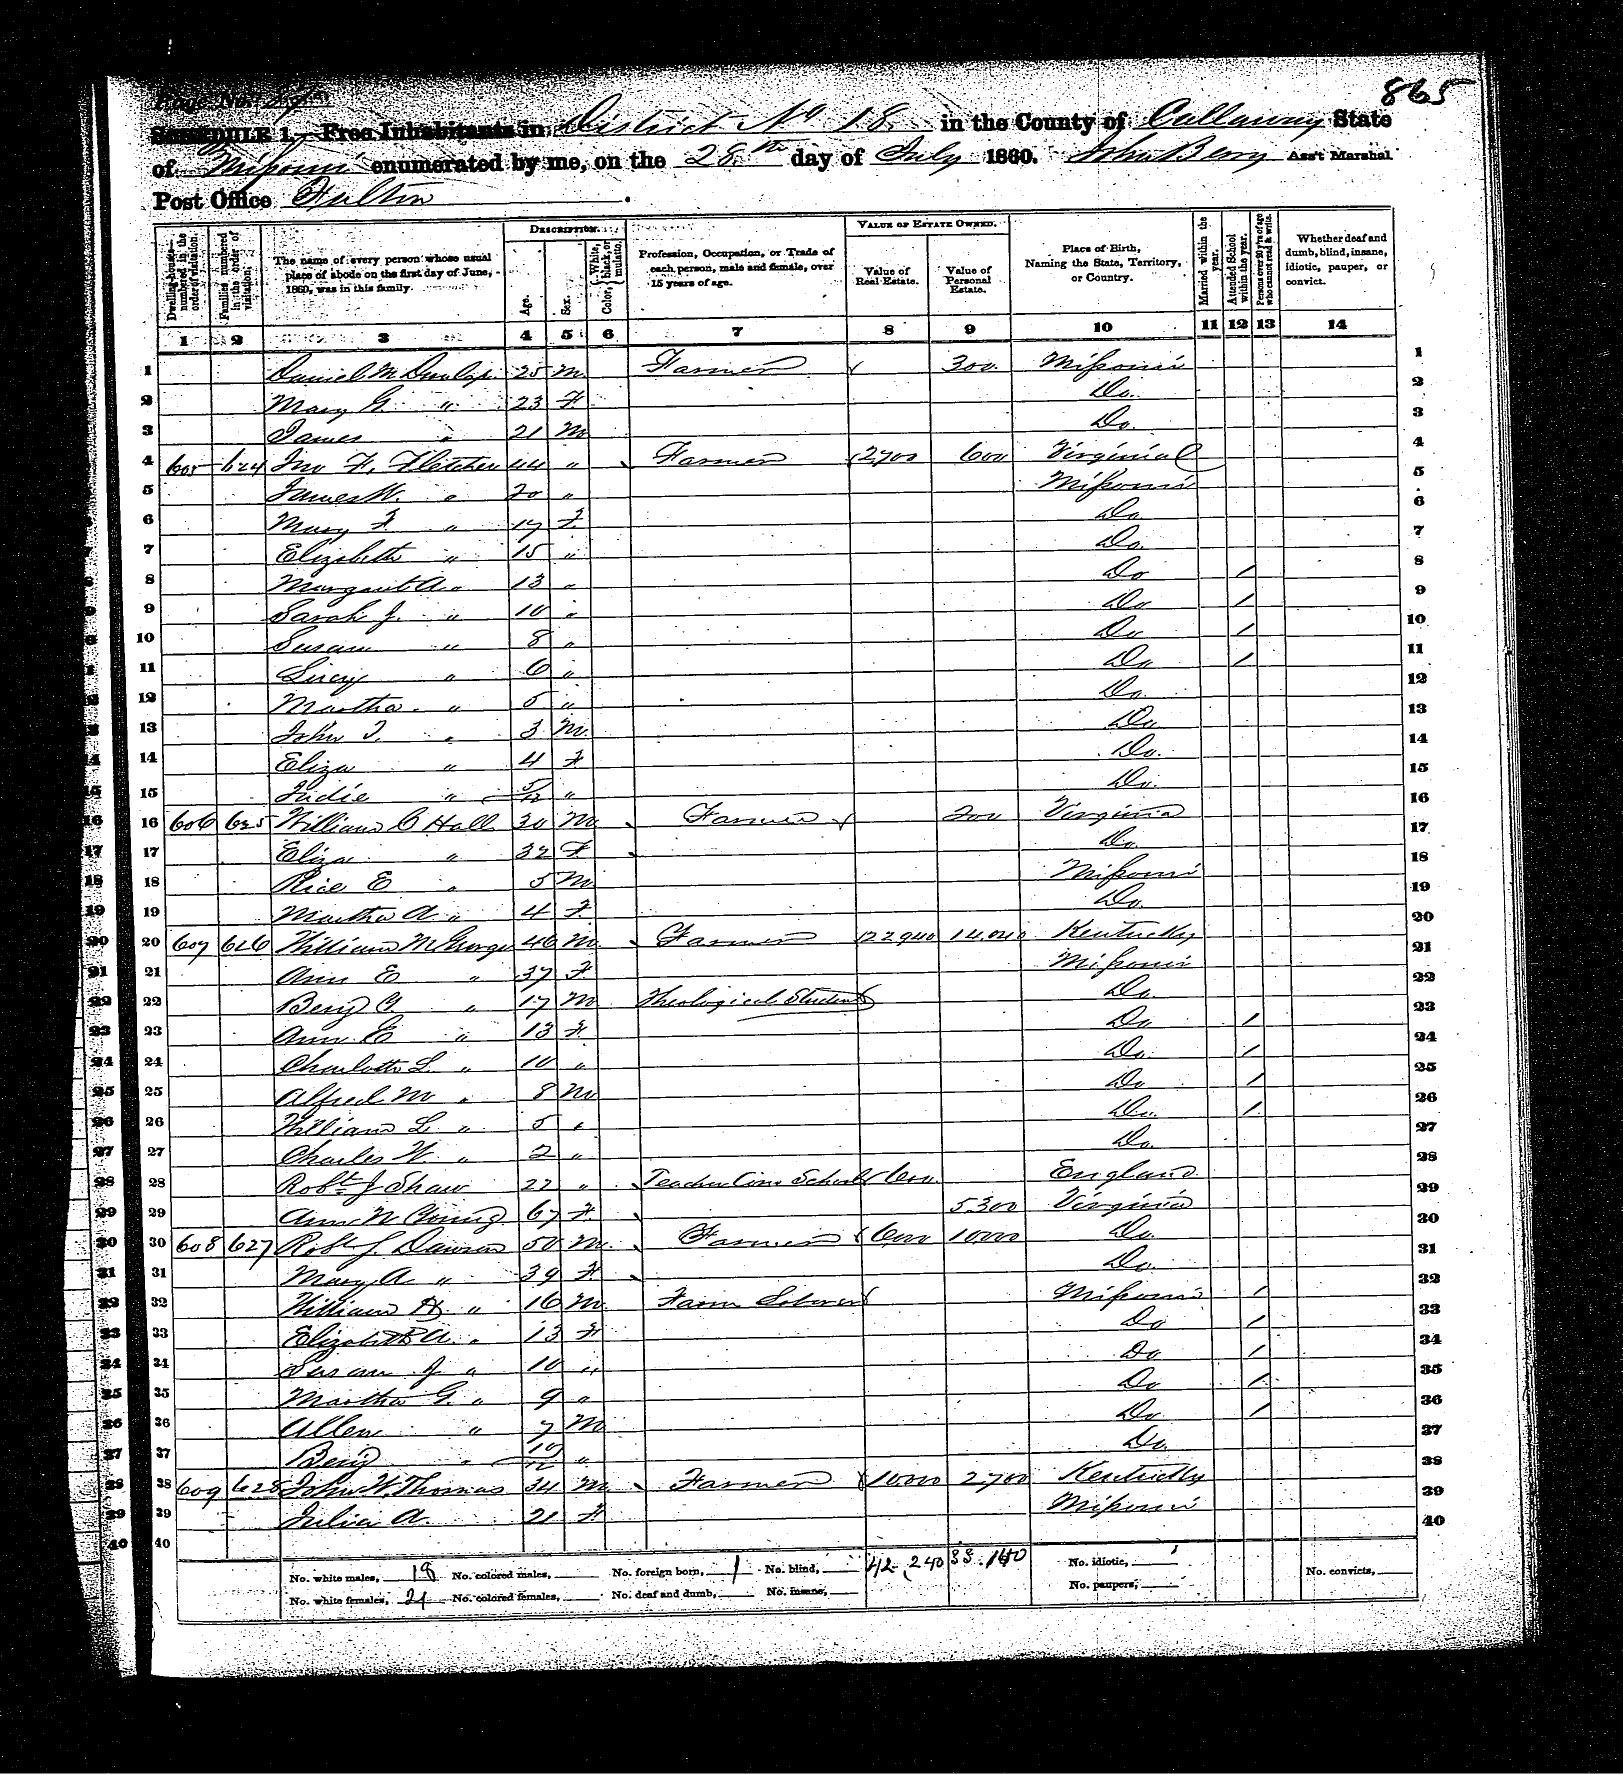 865
Page No.
SCHEDULE 1.—Free Inhabitants in District No 18 in the County of Callaway State
of Missouri enumerated by me, on the 28th day of July 1860. John Berry Ass't Marshal
Post Office Fulton
Dwelling-houses—numbered in the order of visitation. Families numbered in the order of visitation. The name of every person whose usual place of abode on the first day of June, 1860, was in this family. DESCRIPTION. Age. Sex. Color, White, black, or mulatto. Profession, Occupation, or Trade of each person, male and female, over 15 years of age. VALUE OF ESTATE OWNED. Value of Real Estate. Value of Personal Estate. Place of Birth, Naming the State, Territory, or Country. Married within the year. Attended School within the year. Persons over 20 y'rs of age who cannot read & write. Whether deaf and dumb, blind, insane, idiotic, pauper, or convict.
1 2 3 4 5 6 7 8 9 10 11 12 13 14
1 Daniel M Dunlap 25 M Farmer 300 Missouri 1
2 Mary G. " 23 F Do. 2
3 James " 21 M Do. 3
4 605 624 Jno F. Fletcher 44 " Farmer 2700 600 Virginia 4
5 James W. " 20 " Missouri 5
6 Mary F. " 17 F. Do 6
7 Elizabeth " 15 " Do. 7
8 Margaret A. " 13 " Do / 8
9 Sarah J. " 10 " Do / 9
10 Susan " 8 " Do / 10
11 Lucy " 6 " Do / 11
12 Martha " 5 " Do. 12
13 John T. " 3 M. Do 13
14 Eliza " 4 F Do. 14
15 Judie " 5/12 " Do. 15
16 606 625 William C Hall 30 M Farmer 200 Virginia 16
17 Eliza " 32 F Do. 17
18 Rice E " 5 M Missouri 18
19 Martha A " 4 F Do. 19
20 607 626 William McGeorge 46 M Farmer 22940 14,040 Kentucky 20
21 Ann E " 37 F Missouri 21
22 Benj " 17 M Theological Student Do. 22
23 Ann E " 13 F Do / 23
24 Charlotte L. " 10 " Do. / 24
25 Alfred M " 8 M Do / 25
26 William L. " 5 " Do. / 26
27 Charles W " 2 " Do. 27
28 Robt J Shaw 22 " Teacher Com School 600 England 28
29 Ann W 67 F. 5300 Virginia 29
30 608 627 Robt S Dawson 50 M. Farmer 6000 10000 Do. 30
31 Mary A " 39 F Do. 31
32 William " 16 M. Farm Laborer Missouri / 32
33 Elizabeth A. " 13 F Do / 33
34 Susan J " 10 " Do / 34
35 Martha G. " 9 " Do / 35
36 Allen " 7 M Do / 36
37 Benj " 10/12 " Do. 37
38 609 628 John W. Thomas 34 M Farmer 10,000 2,700 Kentucky 38
39 Julia A. 21 F Missouri 39
40 40
No. white males, 18 No. colored males, No. foreign born, 1 No. blind, 42,240 33.140 No. idiotic, No. convicts,
No. white females, 21 No. colored females, No. deaf and dumb, No. insane, No. paupers,